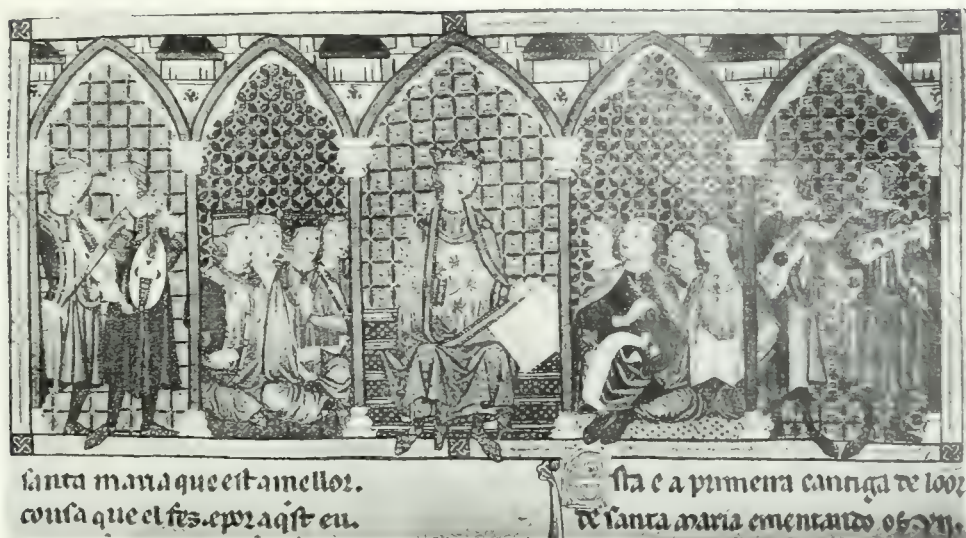 santa maria que est a mellor.
cousa que el fez. e por aqst eu.
sta e a primeira cantiga de loor
de santa maria ementando os